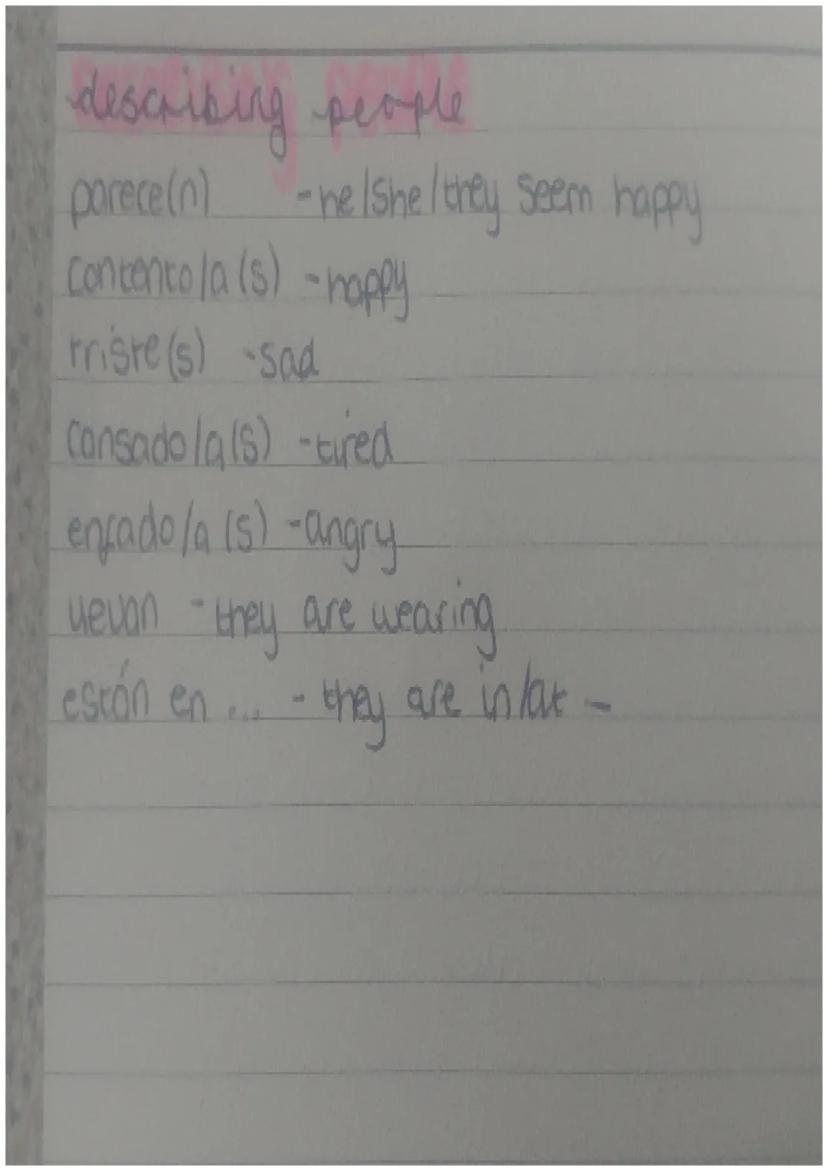 describing people
parece(n) - he/she/they seem happy
contento/a (s) - happy
triste(s) - sad
cansado/a(s) - tired
enfado/a (s) - angry
llevan - they are wearing
están en ... - they are in/at -